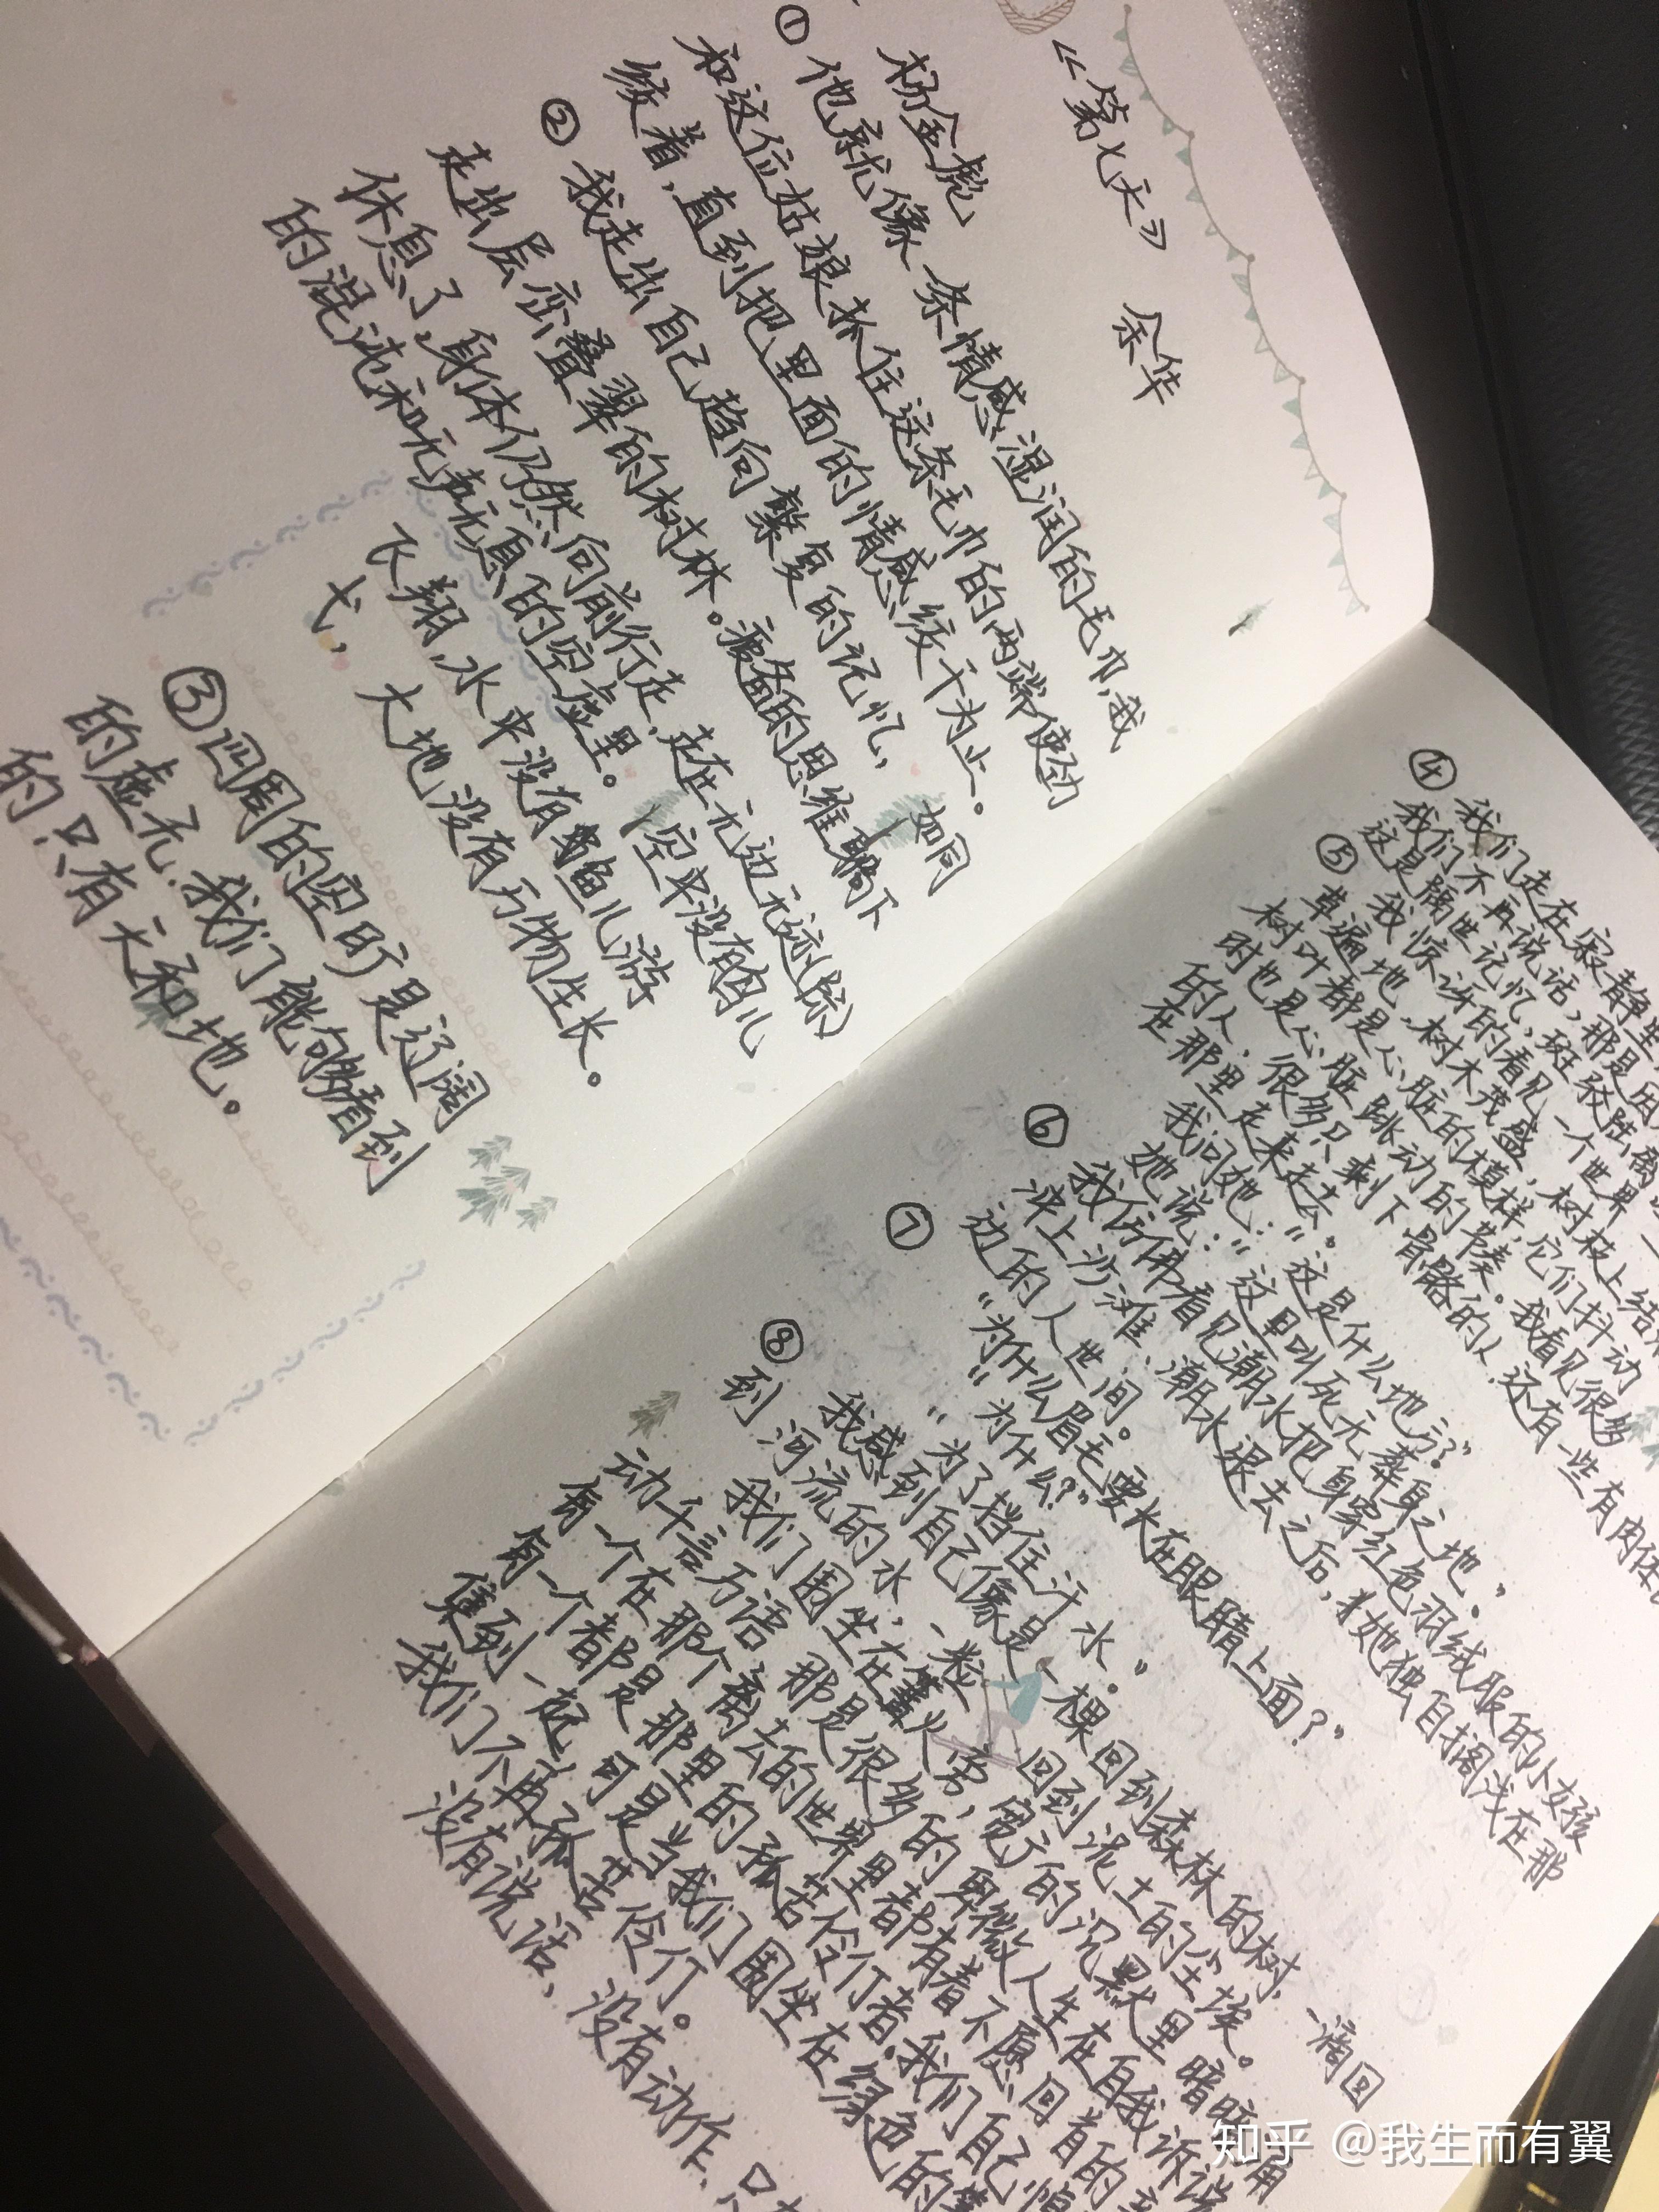 《第七天》 余华
杨金彪
① 他就像一条情感湿润的毛巾,我
和这位姑娘抓住这条毛巾的两端使劲
绞着,直到把里面的情感绞干为止。
② 我走出自己趋向繁复的记忆,如同
走出层峦叠翠的树林。疲惫的思维躺下
休息了,身体仍然向前行走,走在无边无迹(际)
的混沌和无声无息的空虚里。空中没有鸟儿
飞翔,水中没有鱼儿游
弋,大地没有万物生长。
③ 四周的空旷是辽阔
的虚无,我们能够看到
的只有天和地。
④ 我们走在寂静里
我们不再说话,那是因
这是隔世记忆,斑驳陆离
⑤ 我惊讶的看见一个世界
草遍地,树木茂盛,树枝上结
树叶都是心脏的模样,它们抖动
时也是心脏跳动的节奏。我看见很多
的人,很多只剩下骨骼的人,还有一些有肉体
在那里走来走去。
我问她:“这是什么地方?”
她说:“这里叫死无葬身之地。”
⑥ 我仿佛看见潮水把身穿红色羽绒服的小女孩
冲上沙滩,潮水退去之后,她独自搁浅在那
边的人世间。
⑦ “为什么眉毛要长在眼睛上面?”
“为什么?”
“为了挡住汗水。”
⑧ 我感到自己像是一棵回到森林的树,一滴回
到河流的水,一粒回到泥土的尘埃。
我们围坐在篝火旁,宽广的沉默里暗暗涌
动千言万语,那是很多的卑微人生在自我诉说
有一个在那个离去的世界里都有着不愿回首的
有一个都是那里的孤苦伶仃者,我们自己
集到一起,可是当我们围坐在绿色的
我们不再孤苦伶仃。
没有说话,没有动作,只
知乎 @我生而有翼